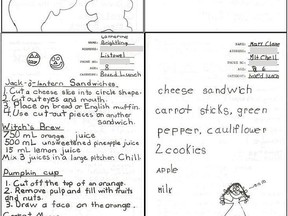 NAME: Catherine
Brightling
Listowel
8
Round Lunch
Jack-o-Lantern Sandwiches.
1. Cut a cheese slice into circle shape.
2. Cut out eyes and mouth.
3. Place on bread or English muffin.
4. Use cut-out pieces on another sandwich.
Witch's Brew
250 mL orange juice
500 mL unsweetened pineapple juice
15 mL lemon juice
Mix 3 juices in a large pitcher. Chill
Pumpkin cup
1. Cut off the top of an orange.
2. Remove pulp and fill with fruits and nuts.
3. Draw a face on the orange.
NAME: Matt Clane
Mitchell
cheese sandwich
carrot sticks, green
pepper, cauliflower
2 cookies
apple
milk